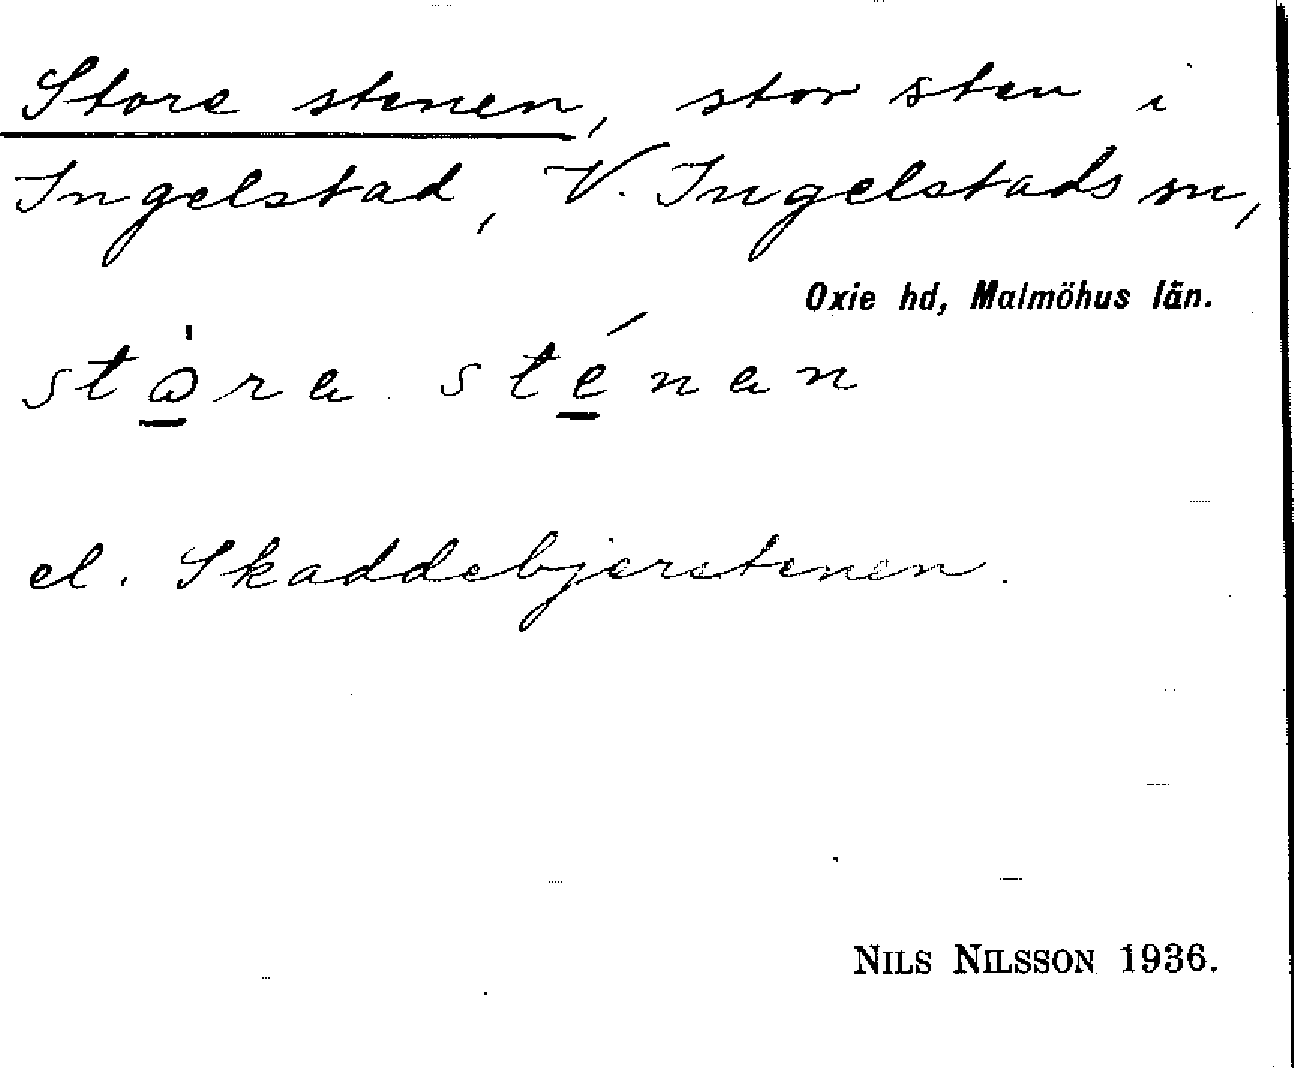 Store stenen, stor sten i
Ingelstad, V. Ingelstads sn,
Oxie hd, Malmöhus län.
el. Skaddebjerstenen.
NILS NILSSON 1936.